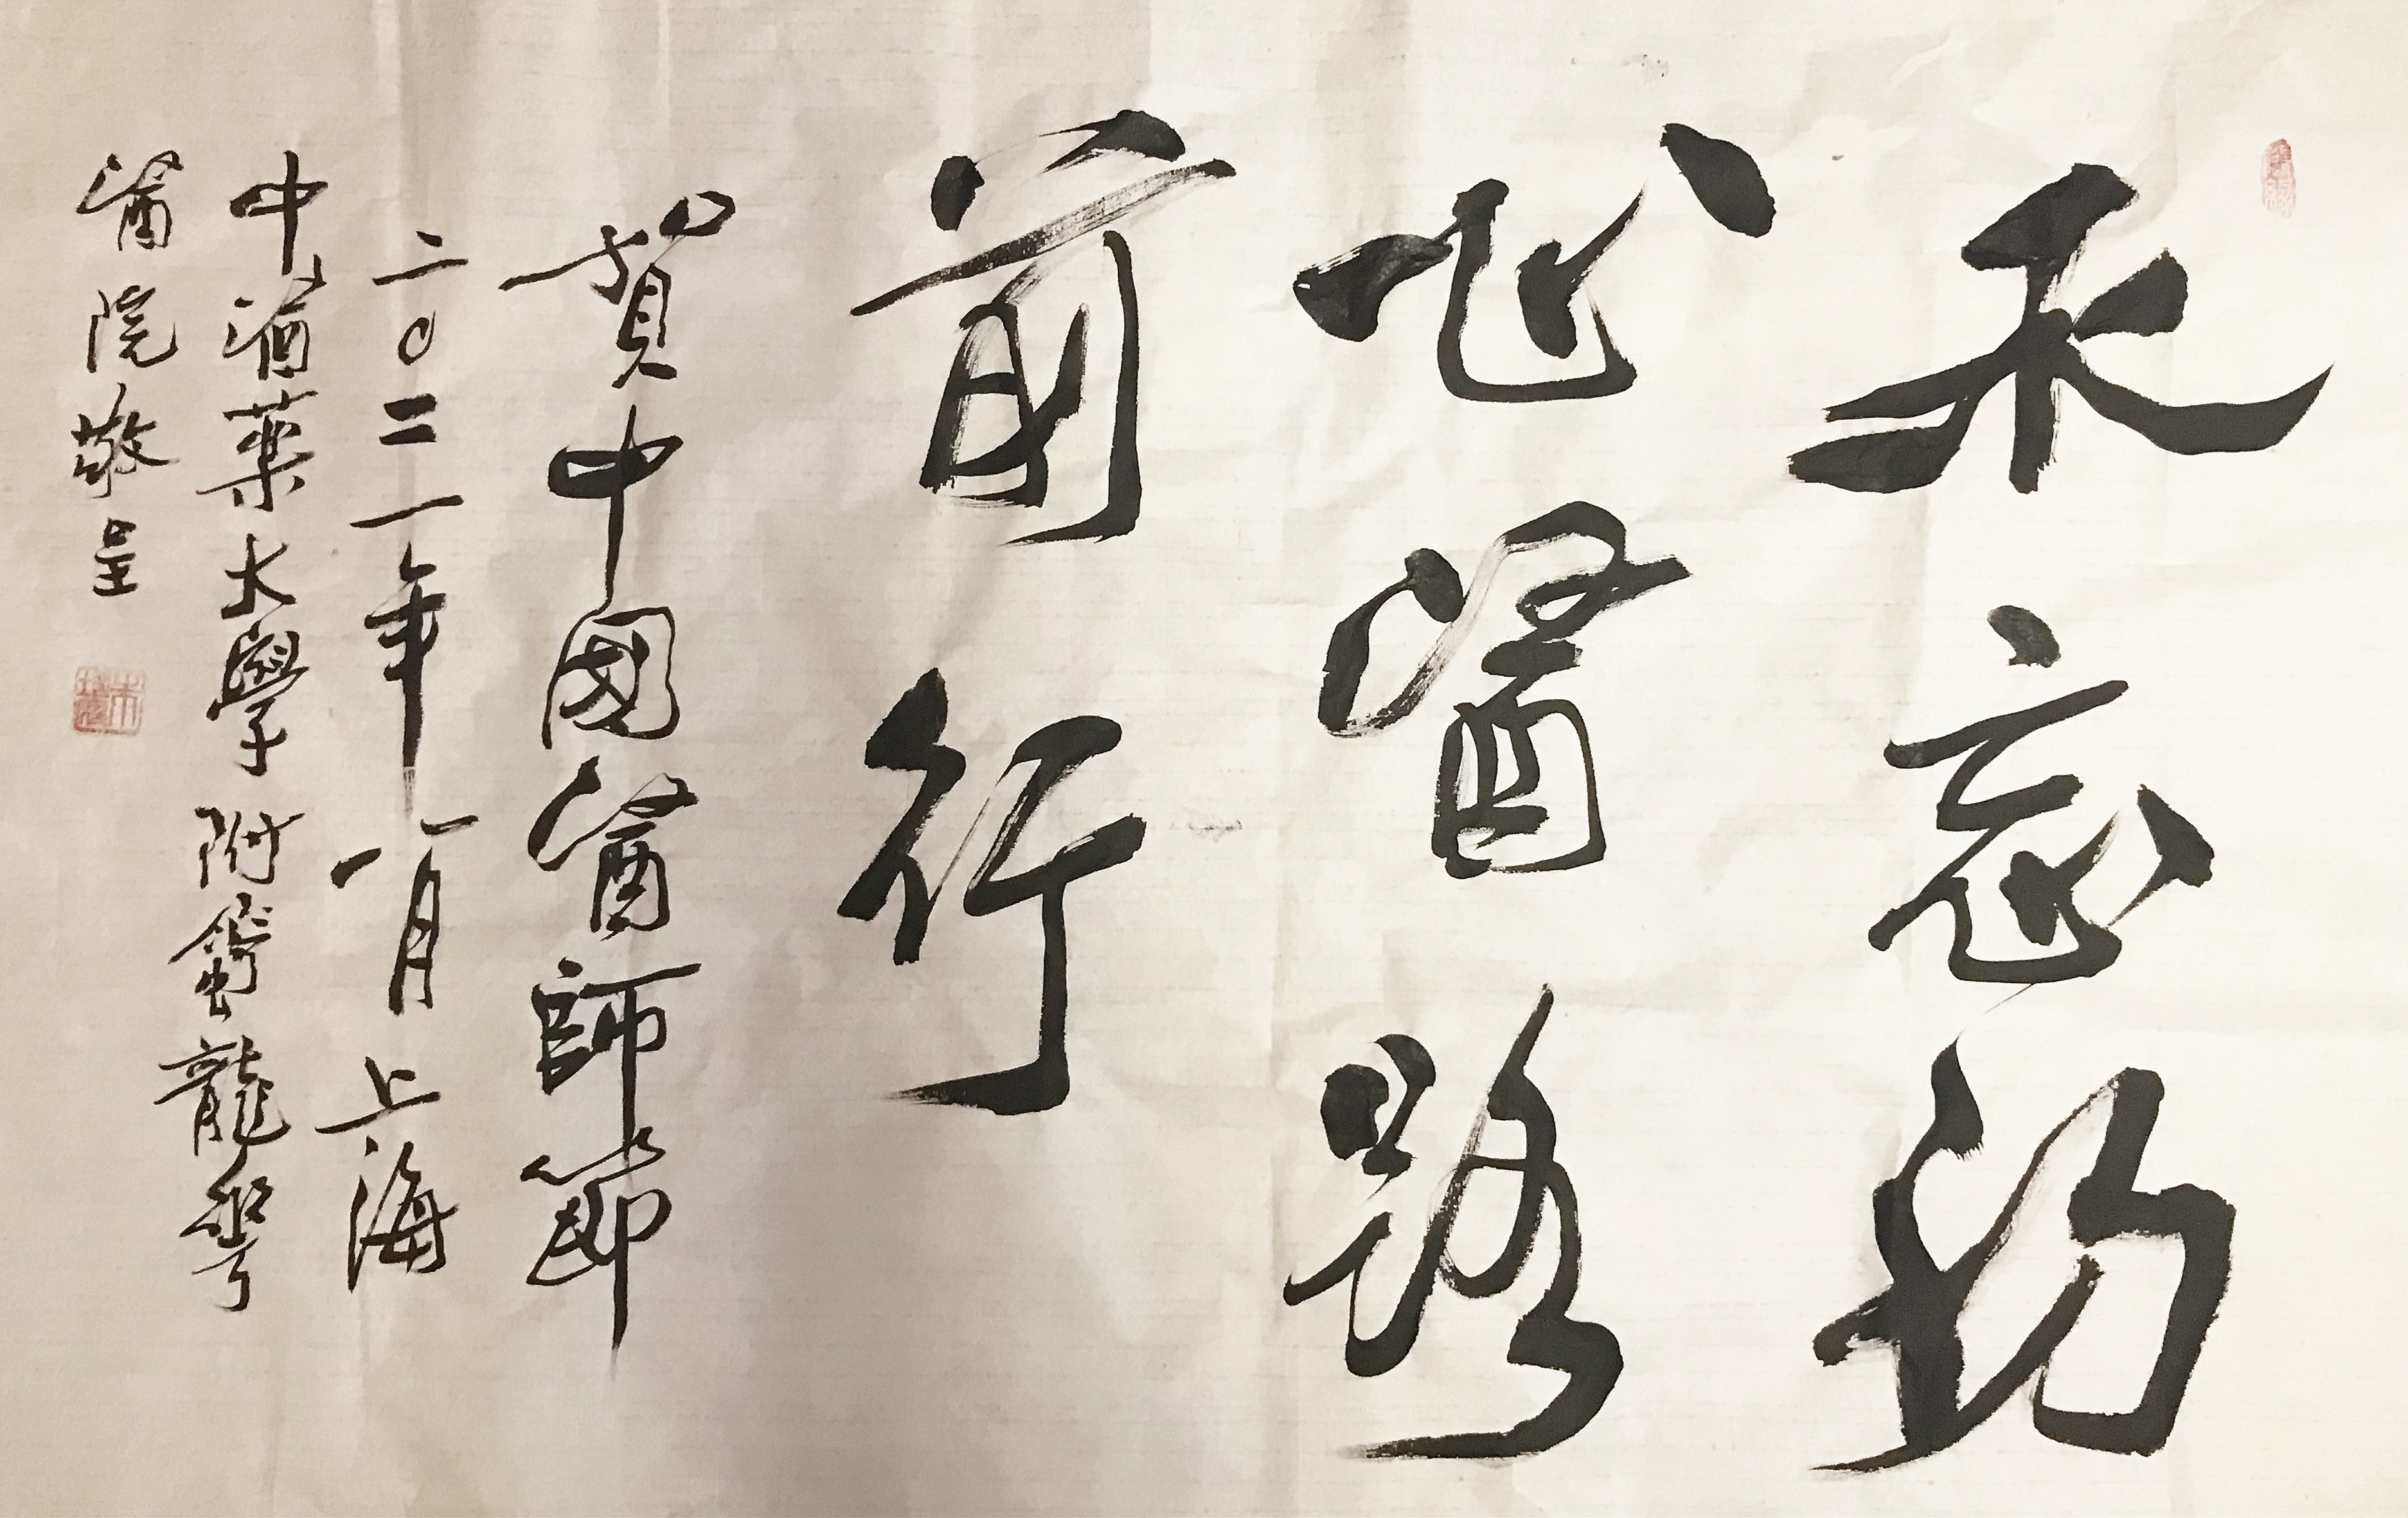 不忘初
心醫路
前行
賀中國醫師節
二〇二一年八月上海
中醫藥大學附屬龍華
醫院敬呈